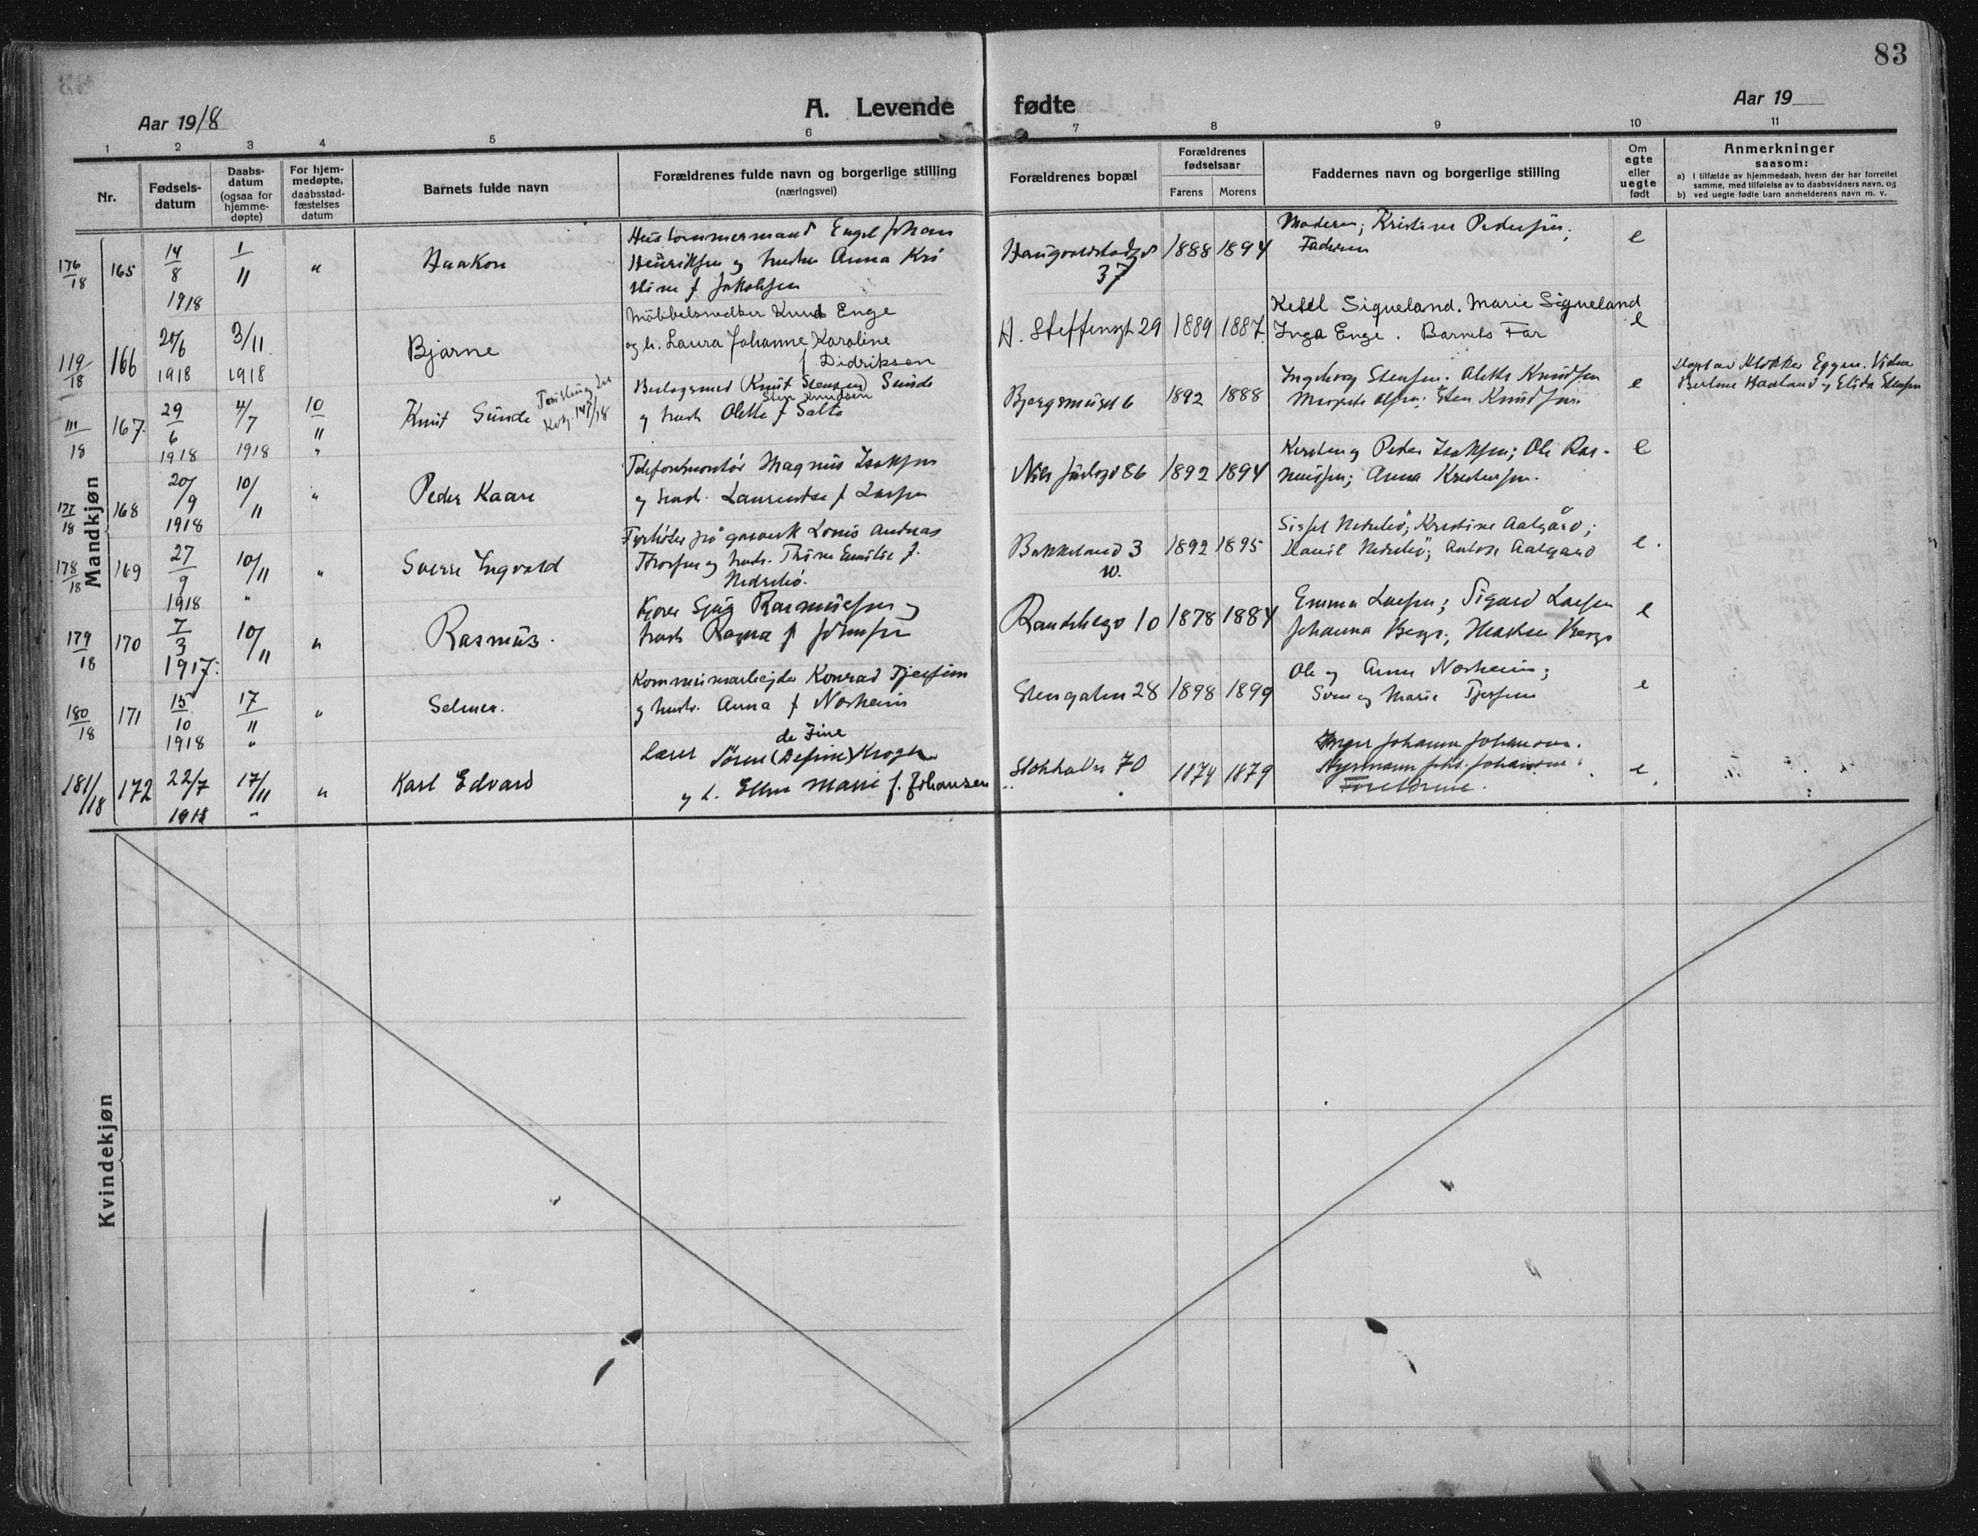 83
Aar 1918
A. Levende fødte
Aar 19
1 2 3 4 5 6 7 8 9 10 11
Nr.
Fødsels-
datum
Daabs-
datum
(ogsaa for
hjemme-
døpte)
For hjem-
medøpte,
daabsstad-
fæstelses
datum
Barnets fulde navn
Forældrenes fulde navn og borgerlige stilling
(næringsvei)
Forældrenes bopæl
Forældrenes
fødselsaar
Farens Morens
Faddernes navn og borgerlige stilling
Om
egte
eller
uegte
født
Anmerkninger
saasom:
a) I tilfælde av hjemmedaab, hvem der har forrettet
samme, med tilføielse av to daabsvidners navn, og
b) ved uegte fødte barn anmelderens navn m. v.
Mandkjøn
176/18 165 14/8 1918 1/11 "
Haakon
Engel Johan
Henriksen og Anna Kri
stine f. Jakobsen
37
1888 1894
Moderen; Kristine Pedersen;
Faderen
e
119/18 166 20/6 1918 3/11 1918
Bjarne
Möbbelsnedker Knud Enge
og h. Laura Johanne Karoline
f Didriksen
H. Steffensgt 29 1889 1887
Ketil Sigveland. Marie Sigveland
Inga Enge. Barnets Far
e
111/18 167. 29/6 1918 4/7 1918 10/11 "
Knut Sunde
147/18
(Knut Stensen) Sunde
Sten Knudsen
og Olette f Salte
Bjergsmuget 6 1892 1888
Ingeborg Stensen. Alette Knudsen
Sten Knudsen
e
Døpt av Klokker Eggen. Vidne
Bertine Haaland og Elida Stensen
177/18 168 20/9 1918 10/11 "
Peder Kaare
Telefonmontør Magnus Isaksen
og Laurentse f Larsen
Nils Juelsgt 86 1892 1894
Kirsten og Peder Isaksen; Ole Ras-
mussen; Anna Kristensen.
e
178/18 169 27/9 1918 10/11 " "
Sverre Ingvald
Fyrbøter på gasverk Louis Andreas
Thorsen og Thine Emilie f.
Nedrebø.
Bakkeland 3
w.
1892 1895
Sissel Nedrebø; Kristine Aalgård;
Daniel Nedrebø; Aalgaard
e.
179/18 170 7/3 1917. 10/11 "
Rasmus.
Kjører Rasmussen og
Ragna f Johnsen
10 1878 1884
Emma Larsen; Sigurd Larsen
Johanna Berge; Berge
e
180/18 171 15/10 1918 17/11 " "
Selmer.
Kommunearbejder Konrad Tjersen
og Anna f Norheim
Stengaten 28 1898 1899
Ole og Anna Norheim;
Sven og Marie Tjersen
e
181/18 172 22/7 1918 17/11 " "
Karl Edvard
de Fine
Lærer Sören (Define) Krogh
og h. Ellen Marie f. Johansen
Stokkaln 70 1874 1879
Inger Johanna Johansen.
Styrmann Johs. Johansen.
Foreldrene.
e.
Kvindekjøn